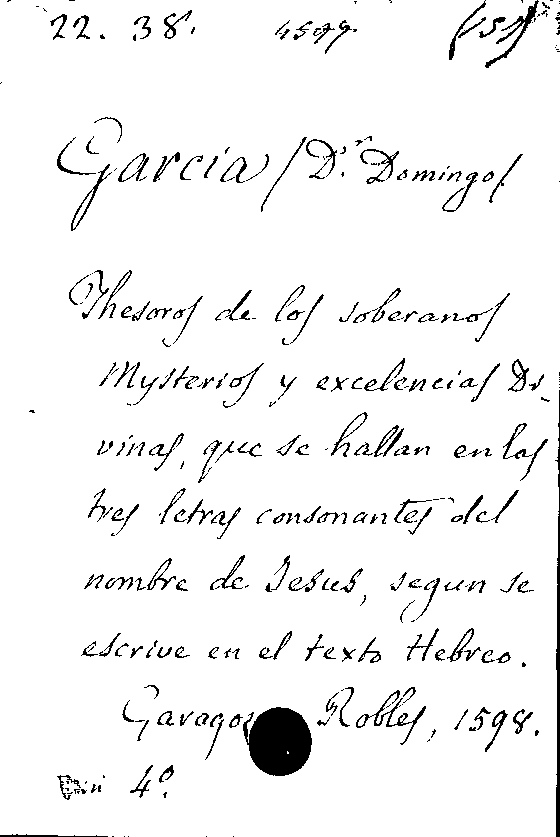 22. 38. 4599. (151)
Garcia / D.r Domingo /.
Thesoros de los soberanos
Mysterios y excelencias Di-
vinas, que se hallan en las
tres letras consonantes del
nombre de Jesus, segun se
escrive en el texto Hebreo.
Robles, 1598.
4º.